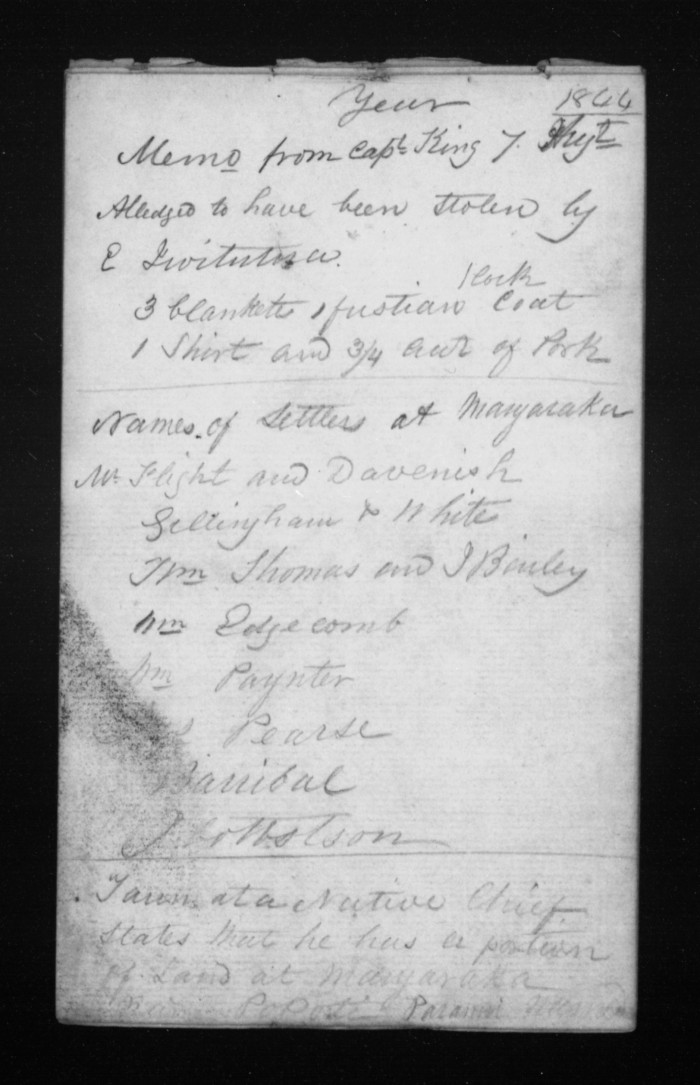 Year 1844
Memo from Capt King J.
Alledged to have been stolen by
E
1 Cock
3 blankets 1 fustian Coat
1 Shirt and 3/4 of Pork
Names of Settlers at Mangaraka
Mr Flight and Davenish
Gillingham & White
Wm Thomas and J Binley
Wm Edgecomb
Wm Paynter
Pearse
Hannibal
J
Native Chief
states that he has a portion
of Land at Mangaraka